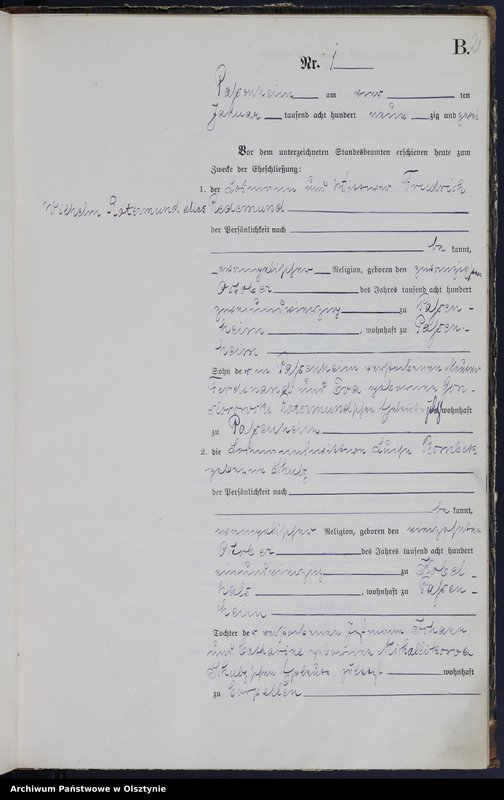 B. 2
Nr. 1
Passenheim am vier ten
Januar tausend acht hundert neun zig und zwei
Vor dem unterzeichneten Standesbeamten erschienen heute zum
Zwecke der Eheschließung:
1. der Losmann und Wittwer Friedrich
Wilhelm Rotermund alias Redemund
der Persönlichkeit nach
be kannt,
evangelischer Religion, geboren den zwanzigsten
October des Jahres tausend acht hundert
zweiundvierzig zu Passen-
heim, wohnhaft zu Passen-
heim
Sohn der in Passenheim verstorbenen
Ferdinand und Eva geborenen
Rotermundschen Eheleute wohnhaft
zu Passenheim
2. die Losmannswittwe Luise
geborene Schulz
der Persönlichkeit nach
be kannt,
evangelischer Religion, geboren den vierzehnten
October des Jahres tausend acht hundert
neunundvierzig zu Kobel-
hals, wohnhaft zu Passen-
heim
Tochter der verstorbenen Johann
und Catharine geborenen
Schulz'schen Eheleute zuletzt wohnhaft
zu Corpellen
Archiwum Państwowe w Olsztynie